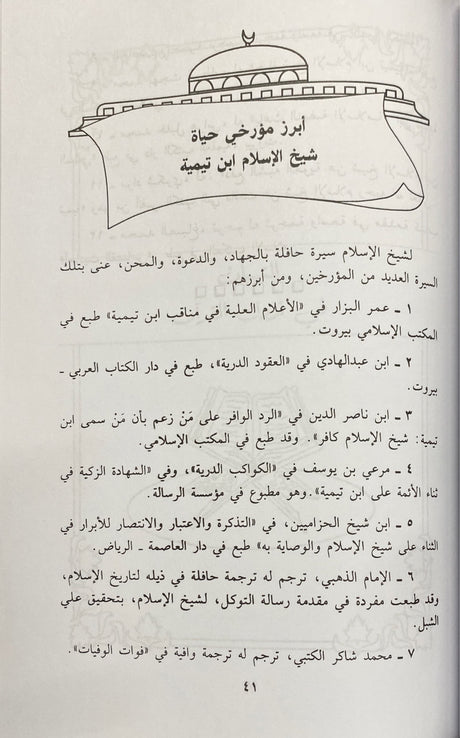 أبرز مؤرخي حياة
شيخ الإسلام ابن تيمية
لشيخ الإسلام سيرة حافلة بالجهاد، والدعوة، والمحن، عنى بتلك
السيرة العديد من المؤرخين، ومن أبرزهم:
١ ـ عمر البزار في «الأعلام العلية في مناقب ابن تيمية» طبع في
المكتب الإسلامي بيروت.
٢ ـ ابن عبدالهادي في «العقود الدرية»، طبع في دار الكتاب العربي ـ
بيروت.
٣ ـ ابن ناصر الدين في «الرد الوافر على مَنْ زعم بأن مَنْ سمى ابن
تيمية: شيخ الإسلام كافر». وقد طبع في المكتب الإسلامي.
٤ ـ مرعي بن يوسف في «الكواكب الدرية»، وفي «الشهادة الزكية في
ثناء الأئمة على ابن تيمية». وهو مطبوع في مؤسسة الرسالة.
٥ ـ ابن شيخ الحزاميين، في «التذكرة والاعتبار والانتصار للأبرار في
الثناء على شيخ الإسلام والوصاية به» طبع في دار العاصمة ـ الرياض.
٦ ـ الإمام الذهبي، ترجم له ترجمة حافلة في ذيله لتاريخ الإسلام،
وقد طبعت مفردة في مقدمة رسالة التوكل، لشيخ الإسلام، بتحقيق علي
الشبل.
٧ ـ محمد شاكر الكتبي، ترجم له ترجمة وافية في «فوات الوفيات».
٤١